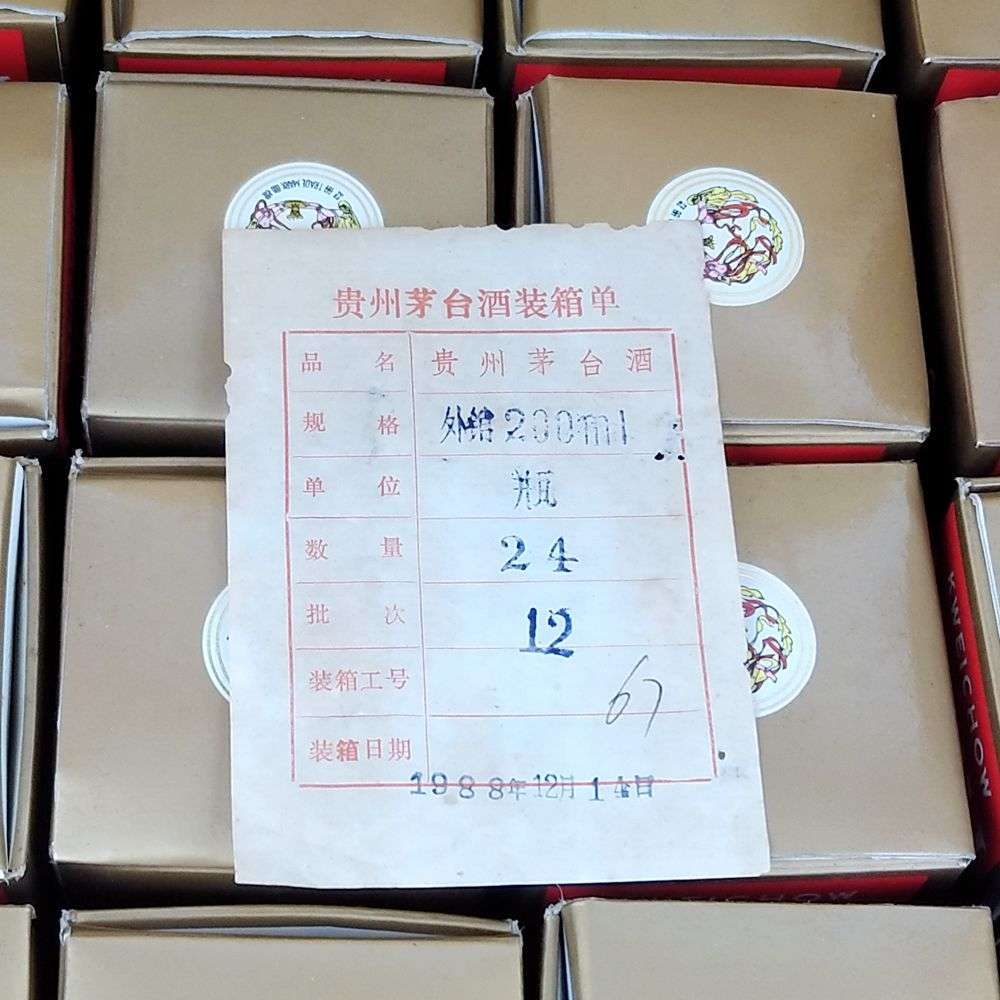 贵州茅台酒装箱单
品 名 贵州茅台酒
规 格 外销200ml
单 位 瓶
数 量 24
批 次 12
装箱工号 67
装箱日期
1988年12月14日
TRADE MARK
KWEICHOW